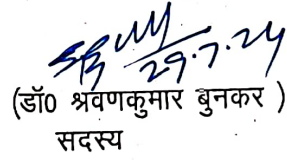 29.7.24
(डॉ0 श्रवणकुमार बुनकर )
सदस्य